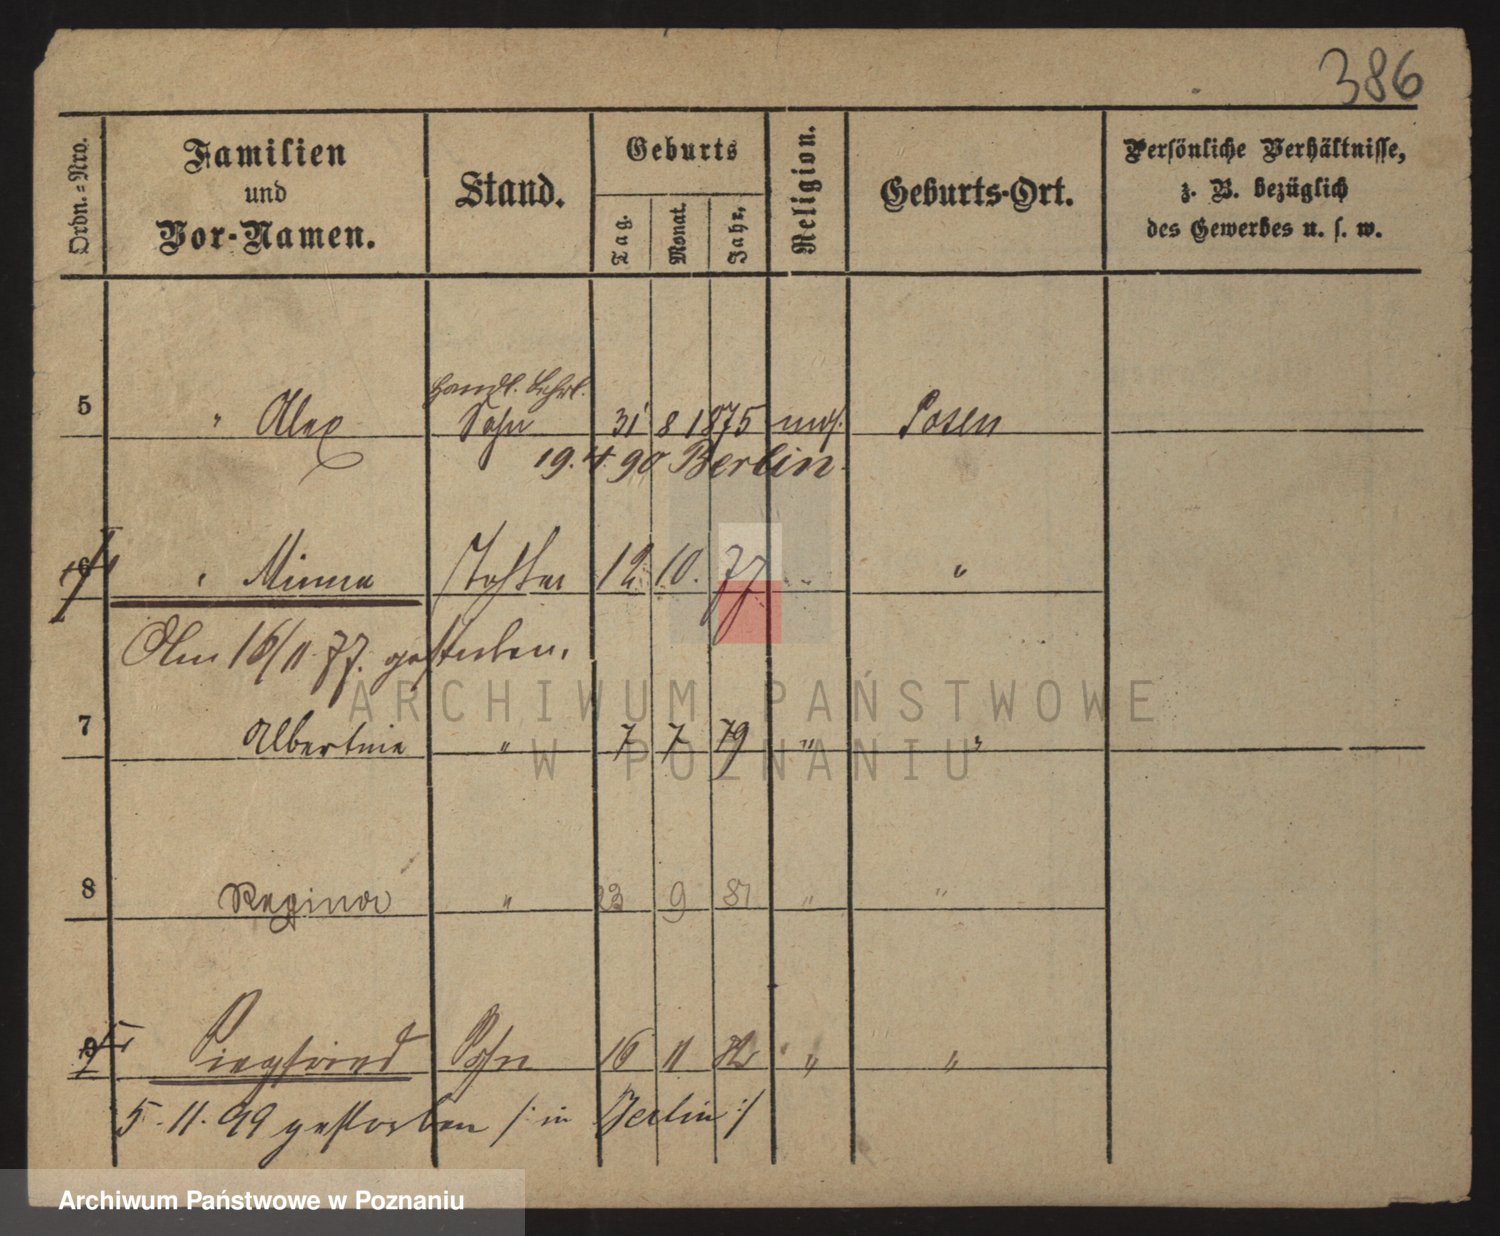 386
Ordn.=Nro.
Familien
und
Vor-Namen.
Stand.
Geburts
Tag.
Monat.
Jahr,
Religion.
Geburts-Ort.
Persönliche Verhältnisse,
z. B. bezüglich
des Gewerbes u. s. w.
Handl. Lehrl.
5 " Alex Sohn 31 8 1875 mos. Posen
19. 4. 90 Berlin.
6 " Minna Tochter 12 10. 77 "
Am 16/11 77. gestorben.
ARCHIWUM PAŃSTWOWE
7 Albertine " 7 7 79 " "
W POZNANIU
8 Regina " 23 9 81 " "
9 Siegfried Sohn 16 11 82 " "
5. 11. 99 gestorben /: in Berlin :/
Archiwum Państwowe w Poznaniu